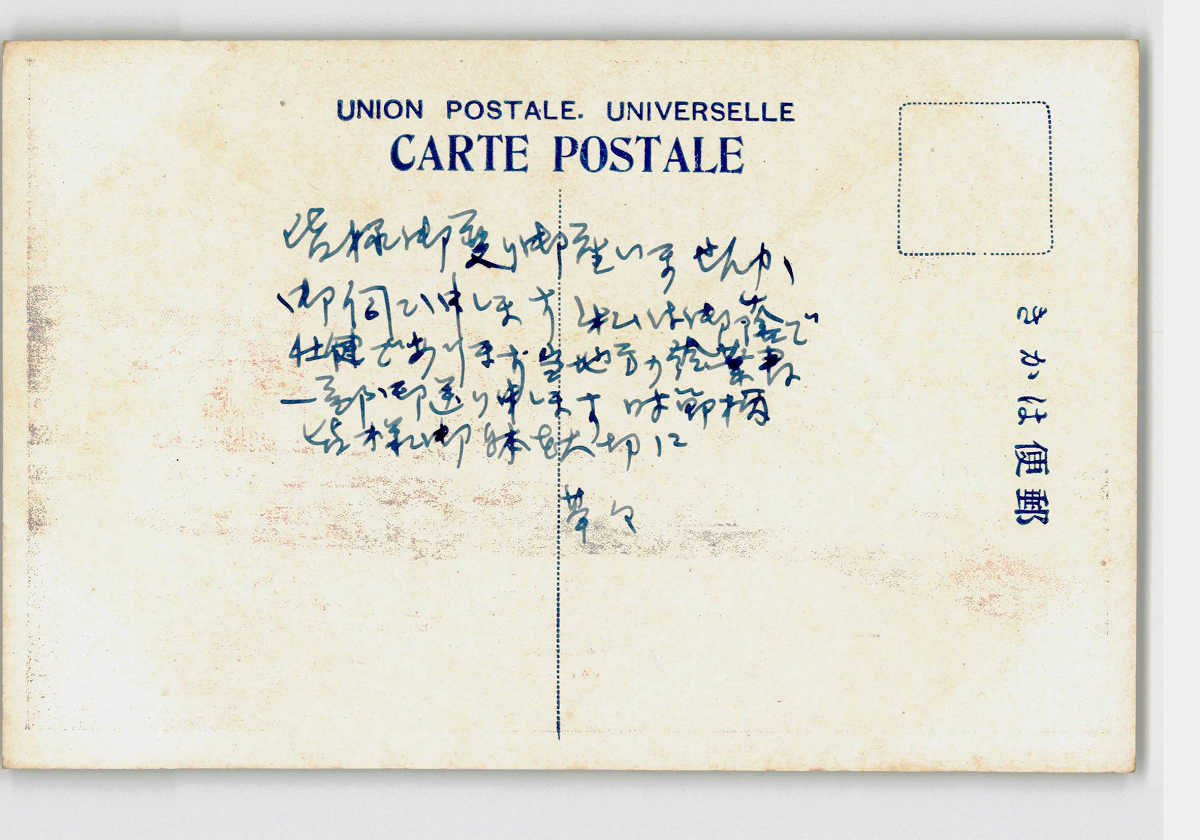 UNION POSTALE. UNIVERSELLE
CARTE POSTALE
皆様御変り御座いませんか、
御伺ひ申します 私は御蔭で
壮健であります 当地方の絵葉書
一部御送り申します 時節柄
皆様御体を大切に
草々
きかは便郵